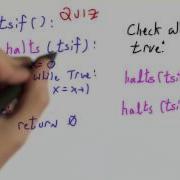 tsif():
Quiz
halts(tsif):
= 0
while True:
x = x+1
return 0
Check al
true:
halts(tsi
halts (ts